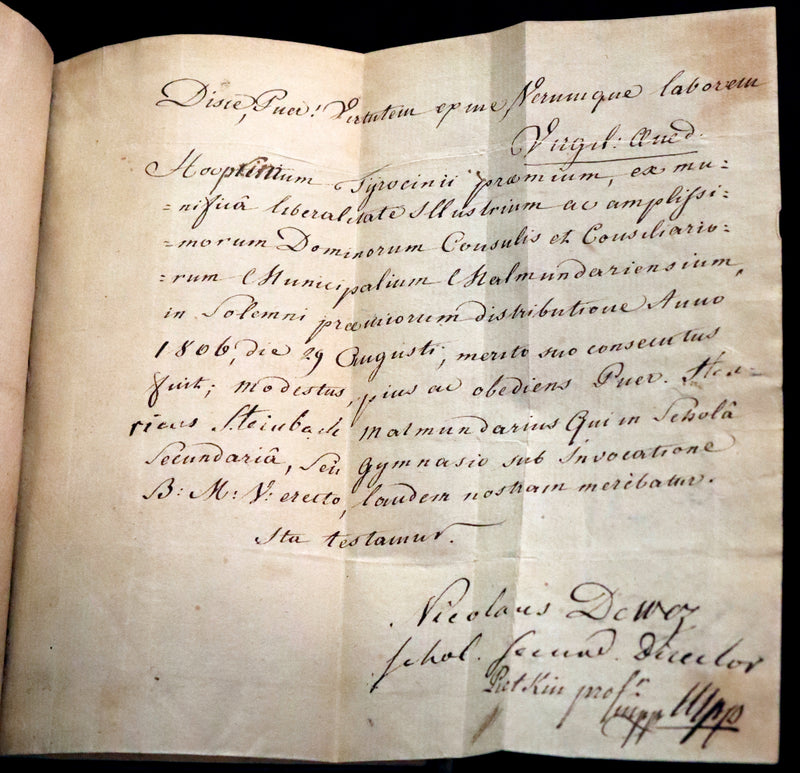 Disce, Puer! Virtutem ex me, Verumque laborem
Virgil: Æned.
Tyrocinii præmium, ex mu-
=nificâ liberalitate Illustrium ac amplissi-
=morum Dominorum Consulis et Consiliario-
=rum Municipalium Malmundariensium,
in Solemni præmiorum distributione Anno
1806, die 29 Augusti, merito suo consecutus
fuit; modestus, pius ac obediens Puer. Hen-
ricus Steinbach Malmundarius Qui in Scholâ
Secundariâ, Seu Gymnasio sub Invocatione
B: M: V: erecto, laudem nostram meribatur.
Ita testamur.
Nicolaus Dewez
schol. secund. Director
Pietkin profr